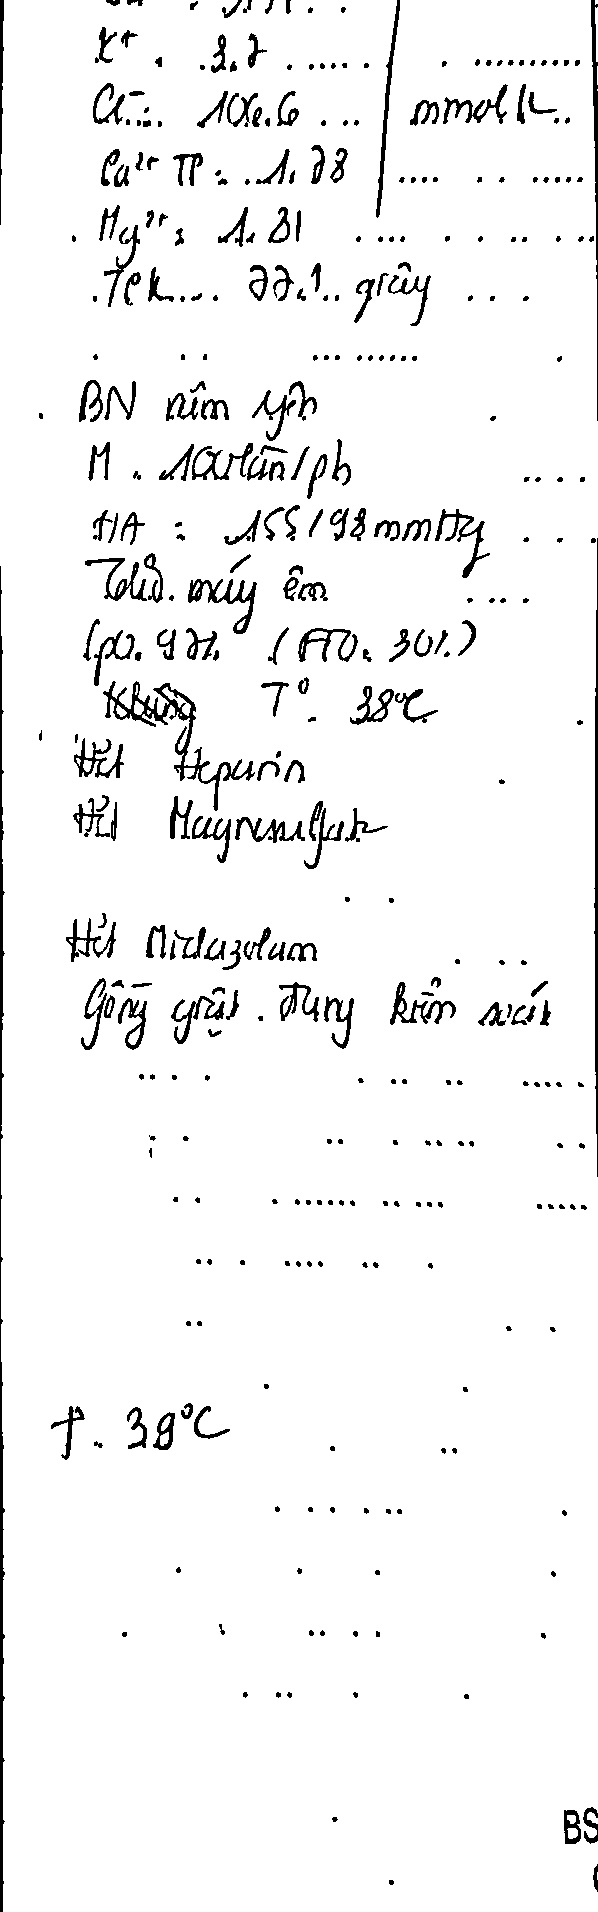 K+ . 3.2
Cl-: 106.6 mmol/L
Ca²⁺ TP: 1.28
Mg²⁺: 1.31
TCK 22.1 giây
BN nằm yên
M . 100 lần/ph
HA : 155/98 mmHg
Thở máy êm
SpO2 92% (FiO2: 30%)
T° . 38°C
Hết Heparin
Hết Magnesulfate
Hết Midazolam
Gồng giật . đang kiểm soát
T° . 39°C
BS